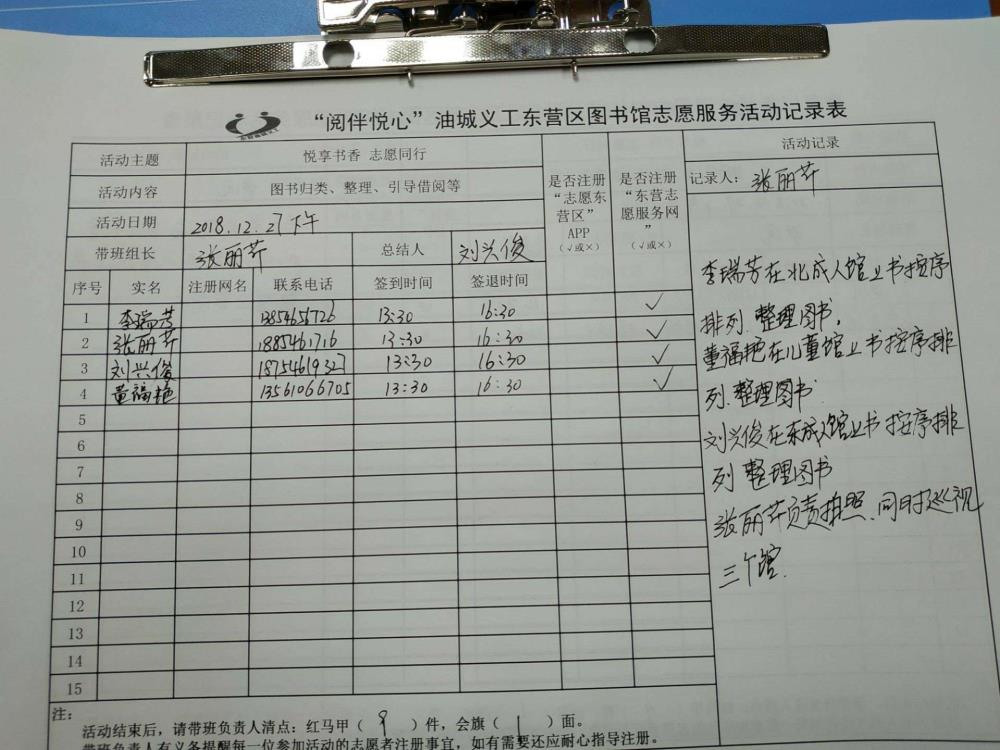 “阅伴悦心”油城义工东营区图书馆志愿服务活动记录表
活动主题 悦享书香 志愿同行
活动内容 图书归类、整理、引导借阅等
活动日期 2018.12.27下午
带班组长 张丽芹 总结人 刘兴俊
是否注册“志愿东营区”APP（√或×）
是否注册“东营志愿服务网”（√或×）
序号 实名 注册网名 联系电话 签到时间 签退时间
1 李瑞芳 13:30 16:30 ✓
2 张丽芹 13:30 16:30 ✓
3 刘兴俊 18754619327 13:30 16:30 ✓
4 董福艳 13561066705 13:30 16:30 ✓
5
6
7
8
9
10
11
12
13
14
15
活动记录
记录人：张丽芹
李瑞芳在北成人馆上书按序
排列.整理图书,
董福艳在儿童馆上书按序排
列.整理图书
刘兴俊在东成人馆上书按序排
列 整理图书
张丽芹负责拍照、同时巡视
三个馆.
注：
活动结束后，请带班负责人清点：红马甲（9）件，会旗（1）面。
带班负责人有义务提醒每一位参加活动的志愿者注册事宜，如有需要还应耐心指导注册。